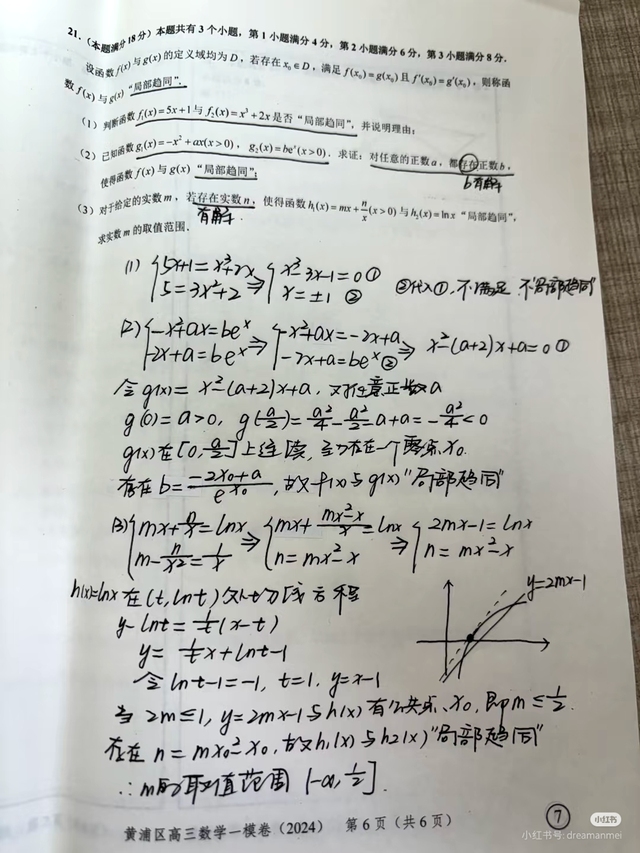 21.(本题满分18分)本题共有3个小题,第1小题满分4分,第2小题满分6分,第3小题满分8分.
设函数f(x)与g(x)的定义域均为D,若存在x₀∈D,满足f(x₀)=g(x₀)且f'(x₀)=g'(x₀),则称函
数f(x)与g(x)“局部趋同”.
(1)判断函数f₁(x)=5x+1与f₂(x)=x³+2x是否“局部趋同”,并说明理由;
(2)已知函数g₁(x)=-x²+ax(x>0),g₂(x)=beˣ(x>0).求证:对任意的正数a,都存在正数b,
使得函数f(x)与g(x)“局部趋同”;
b有解
(3)对于给定的实数m,若存在实数n,使得函数h₁(x)=mx+n/x(x>0)与h₂(x)=lnx“局部趋同”,
有解.
求实数m的取值范围.
(1) {5x+1=x³+2x ⇒ {x³-3x-1=0①
5=3x²+2 x=±1 ② ②代入①,不满足 不“局部趋同”
(2) {-x²+ax=beˣ ⇒ {-x²+ax=-2x+a ⇒ x²-(a+2)x+a=0 ①
-2x+a=beˣ -2x+a=beˣ②
令g(x)=x²-(a+2)x+a,对任意正数a
g(0)=a>0, g(a/2)=a²/4-a²/2-a+a=-a²/4<0
g(x)在[0,a/2]上连续,至少存在一个零点x₀.
存在b=(-2x₀+a)/e^x₀,故f(x)与g(x)“局部趋同”
(3) {mx+n/x=lnx ⇒ {mx+(mx²-x)/x=lnx ⇒ {2mx-1=lnx
m-n/x²=1/x n=mx²-x n=mx²-x
h(x)=lnx在(t,lnt)处切线方程
y=2mx-1
y-lnt=1/t(x-t)
y=1/t x+lnt-1
令lnt-1=-1,t=1,y=x-1
当2m≤1,y=2mx-1与h(x)有公共点x₀,即m≤1/2.
存在n=mx₀²-x₀,故h₁(x)与h₂(x)“局部趋同”
∴m的取值范围(-∞,1/2].
黄浦区高三数学一模卷(2024) 第6页(共6页)
⑦
小红书
小红书号:dreamanmei